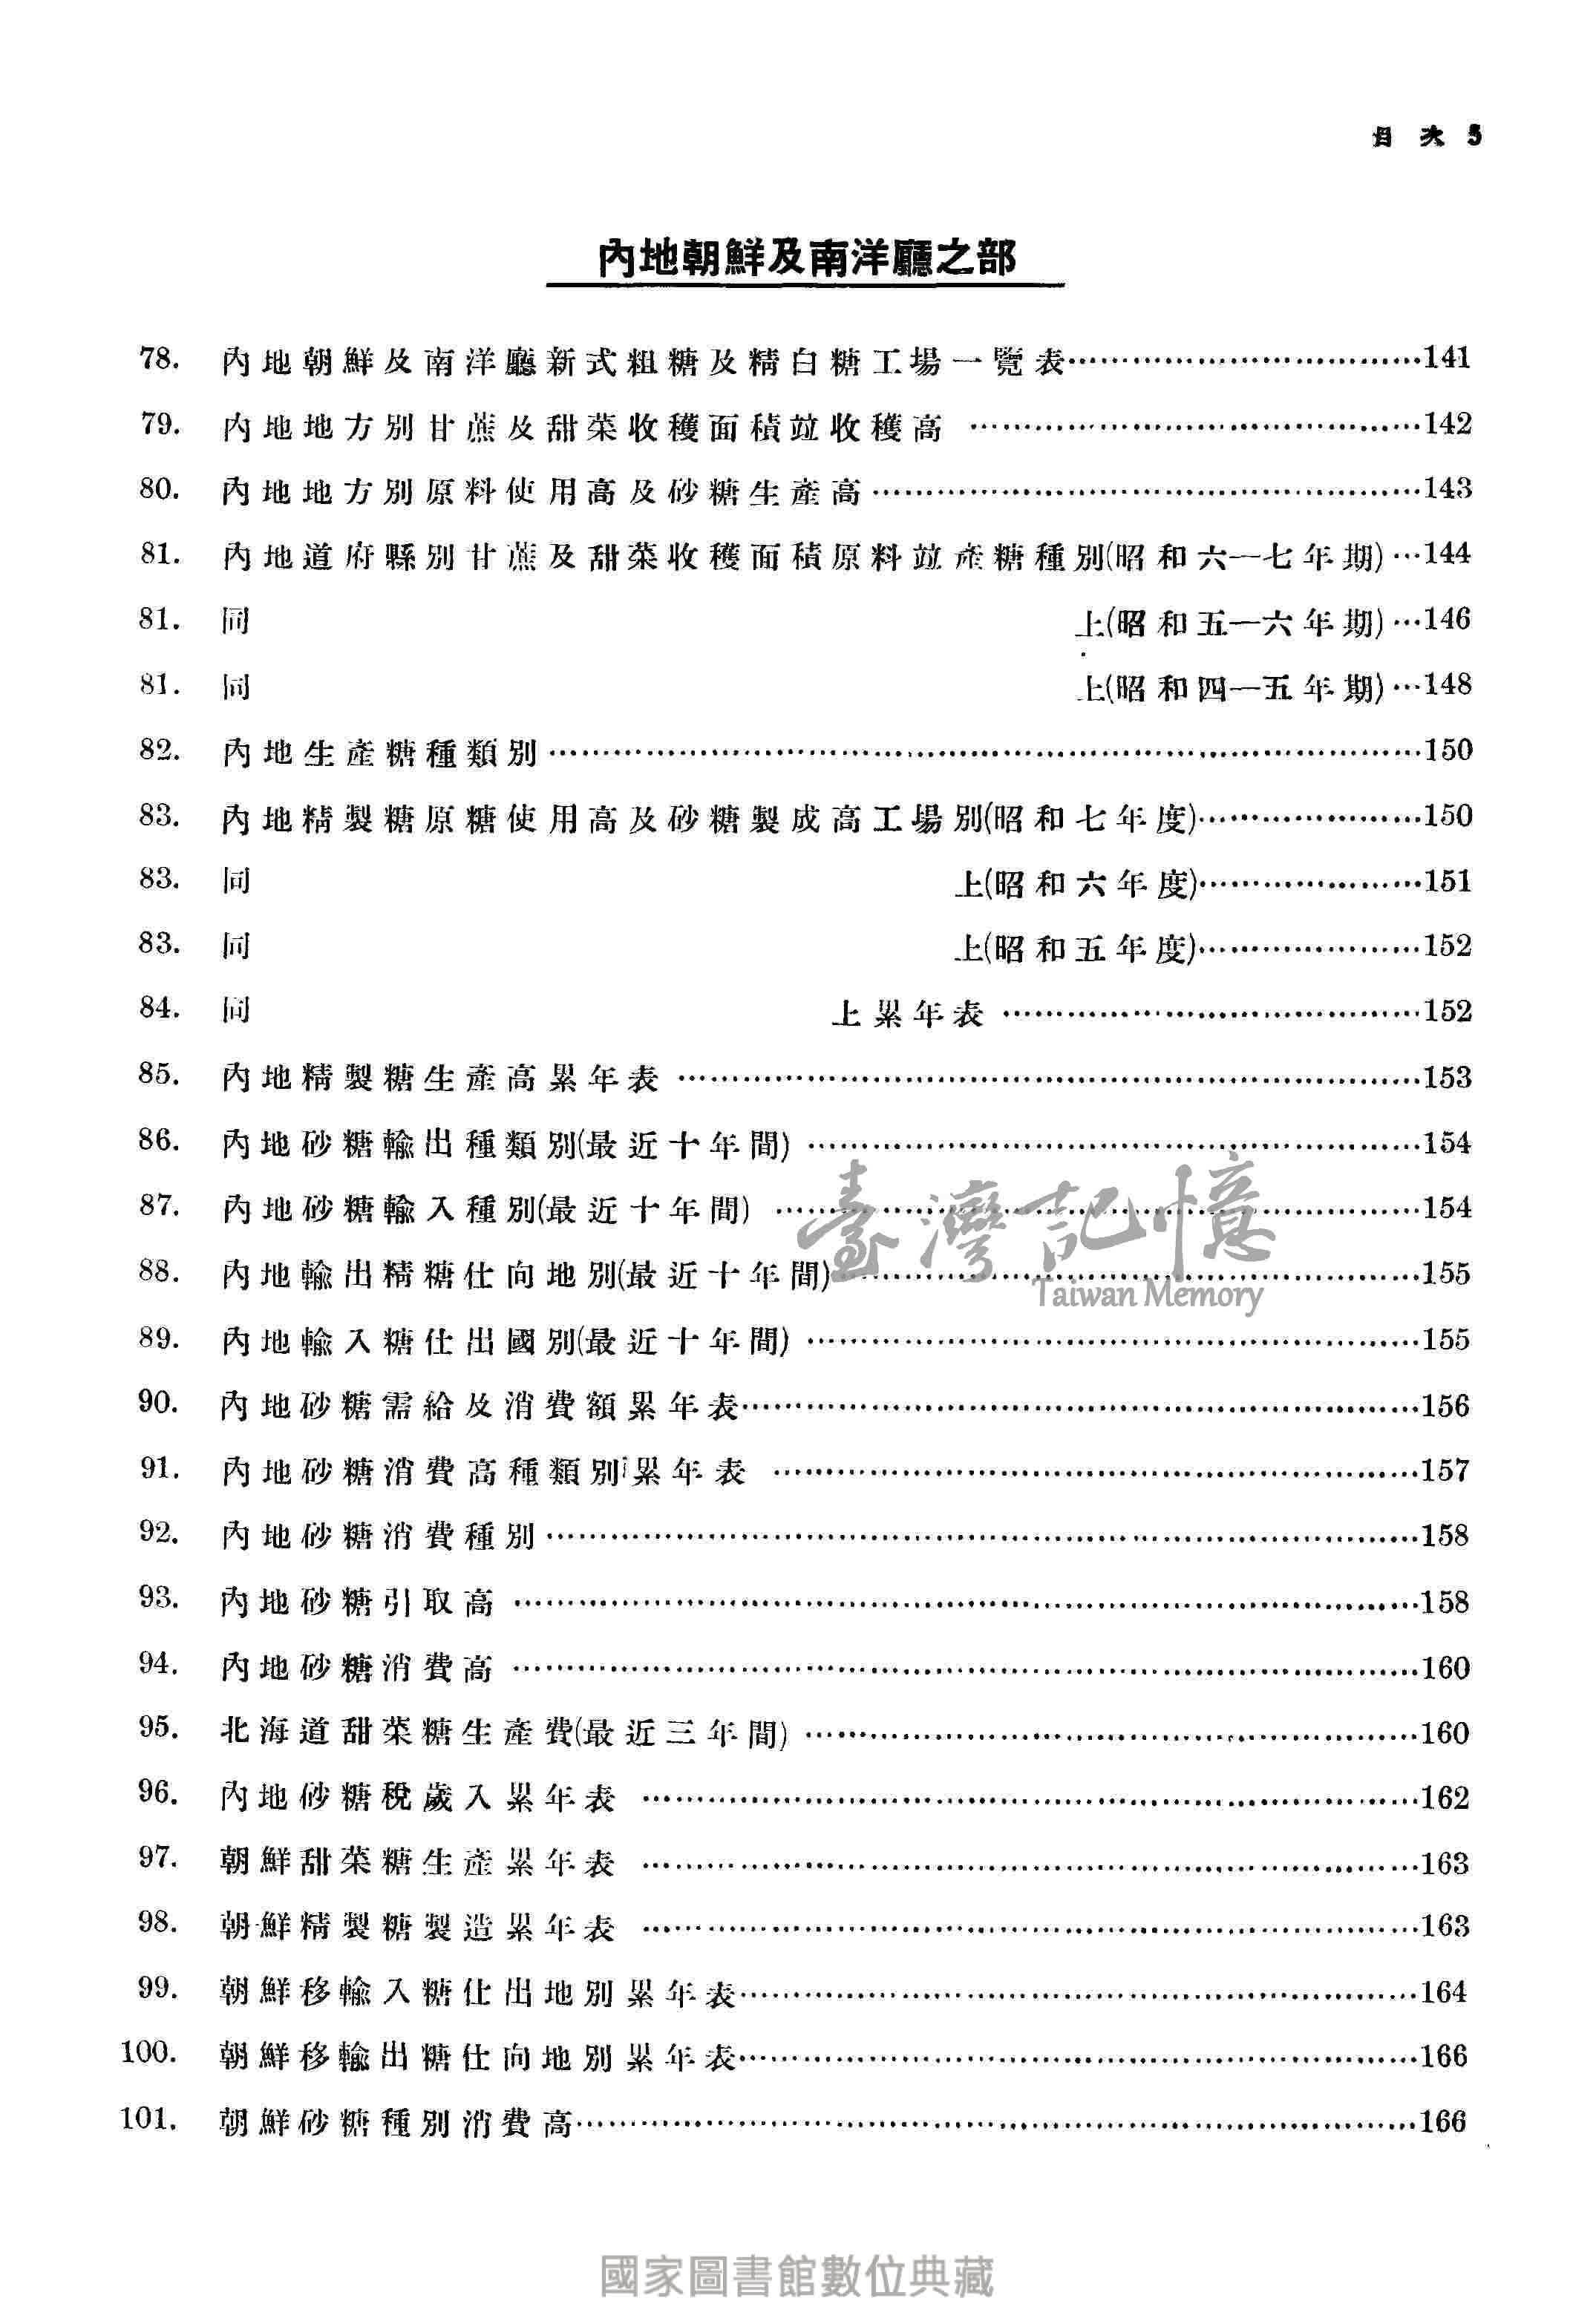 目次 5
內地朝鮮及南洋廳之部
78. 內地朝鮮及南洋廳新式粗糖及精白糖工場一覽表……………………………141
79. 內地地方別甘蔗及甜菜收穫面積竝收穫高……………………………142
80. 內地地方別原料使用高及砂糖生產高……………………………143
81. 內地道府縣別甘蔗及甜菜收穫面積原料竝產糖種別(昭和六—七年期)…144
81. 同上(昭和五—六年期)…146
81. 同上(昭和四—五年期)…148
82. 內地生產糖種類別……………………………150
83. 內地精製糖原糖使用高及砂糖製成高工場別(昭和七年度)…………………150
83. 同上(昭和六年度)…………………151
83. 同上(昭和五年度)…………………152
84. 同上累年表……………………………152
85. 內地精製糖生產高累年表……………………………153
86. 內地砂糖輸出種類別(最近十年間)……………………………154
87. 內地砂糖輸入種別(最近十年間)……………………………154
88. 內地輸出精糖仕向地別(最近十年間)……………………………155
89. 內地輸入糖仕出國別(最近十年間)……………………………155
90. 內地砂糖需給及消費額累年表……………………………156
91. 內地砂糖消費高種類別累年表……………………………157
92. 內地砂糖消費種別……………………………158
93. 內地砂糖引取高……………………………158
94. 內地砂糖消費高……………………………160
95. 北海道甜菜糖生產費(最近三年間)……………………………160
96. 內地砂糖稅歲入累年表……………………………162
97. 朝鮮甜菜糖生產累年表……………………………163
98. 朝鮮精製糖製造累年表……………………………163
99. 朝鮮移輸入糖仕出地別累年表……………………………164
100. 朝鮮移輸出糖仕向地別累年表……………………………166
101. 朝鮮砂糖種別消費高……………………………166
臺灣記憶
Taiwan Memory
國家圖書館數位典藏